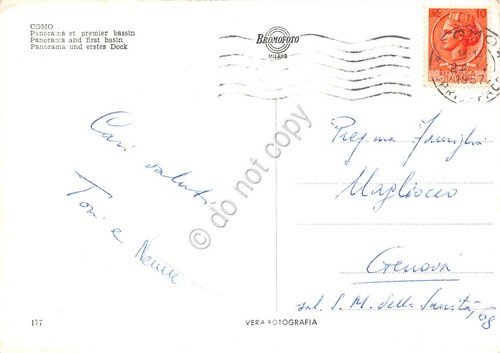 COMO
Panorama et premier bassin
Panorama and first basin
Panorama und erstes Dock
BROMOFOTO
MILANO
10
1957
Cari saluti
Toni e
Preg.ma Famiglia
Magliocco
Genova
sal. S. M. della Sanità, 68
do not copy
177
VERA FOTOGRAFIA